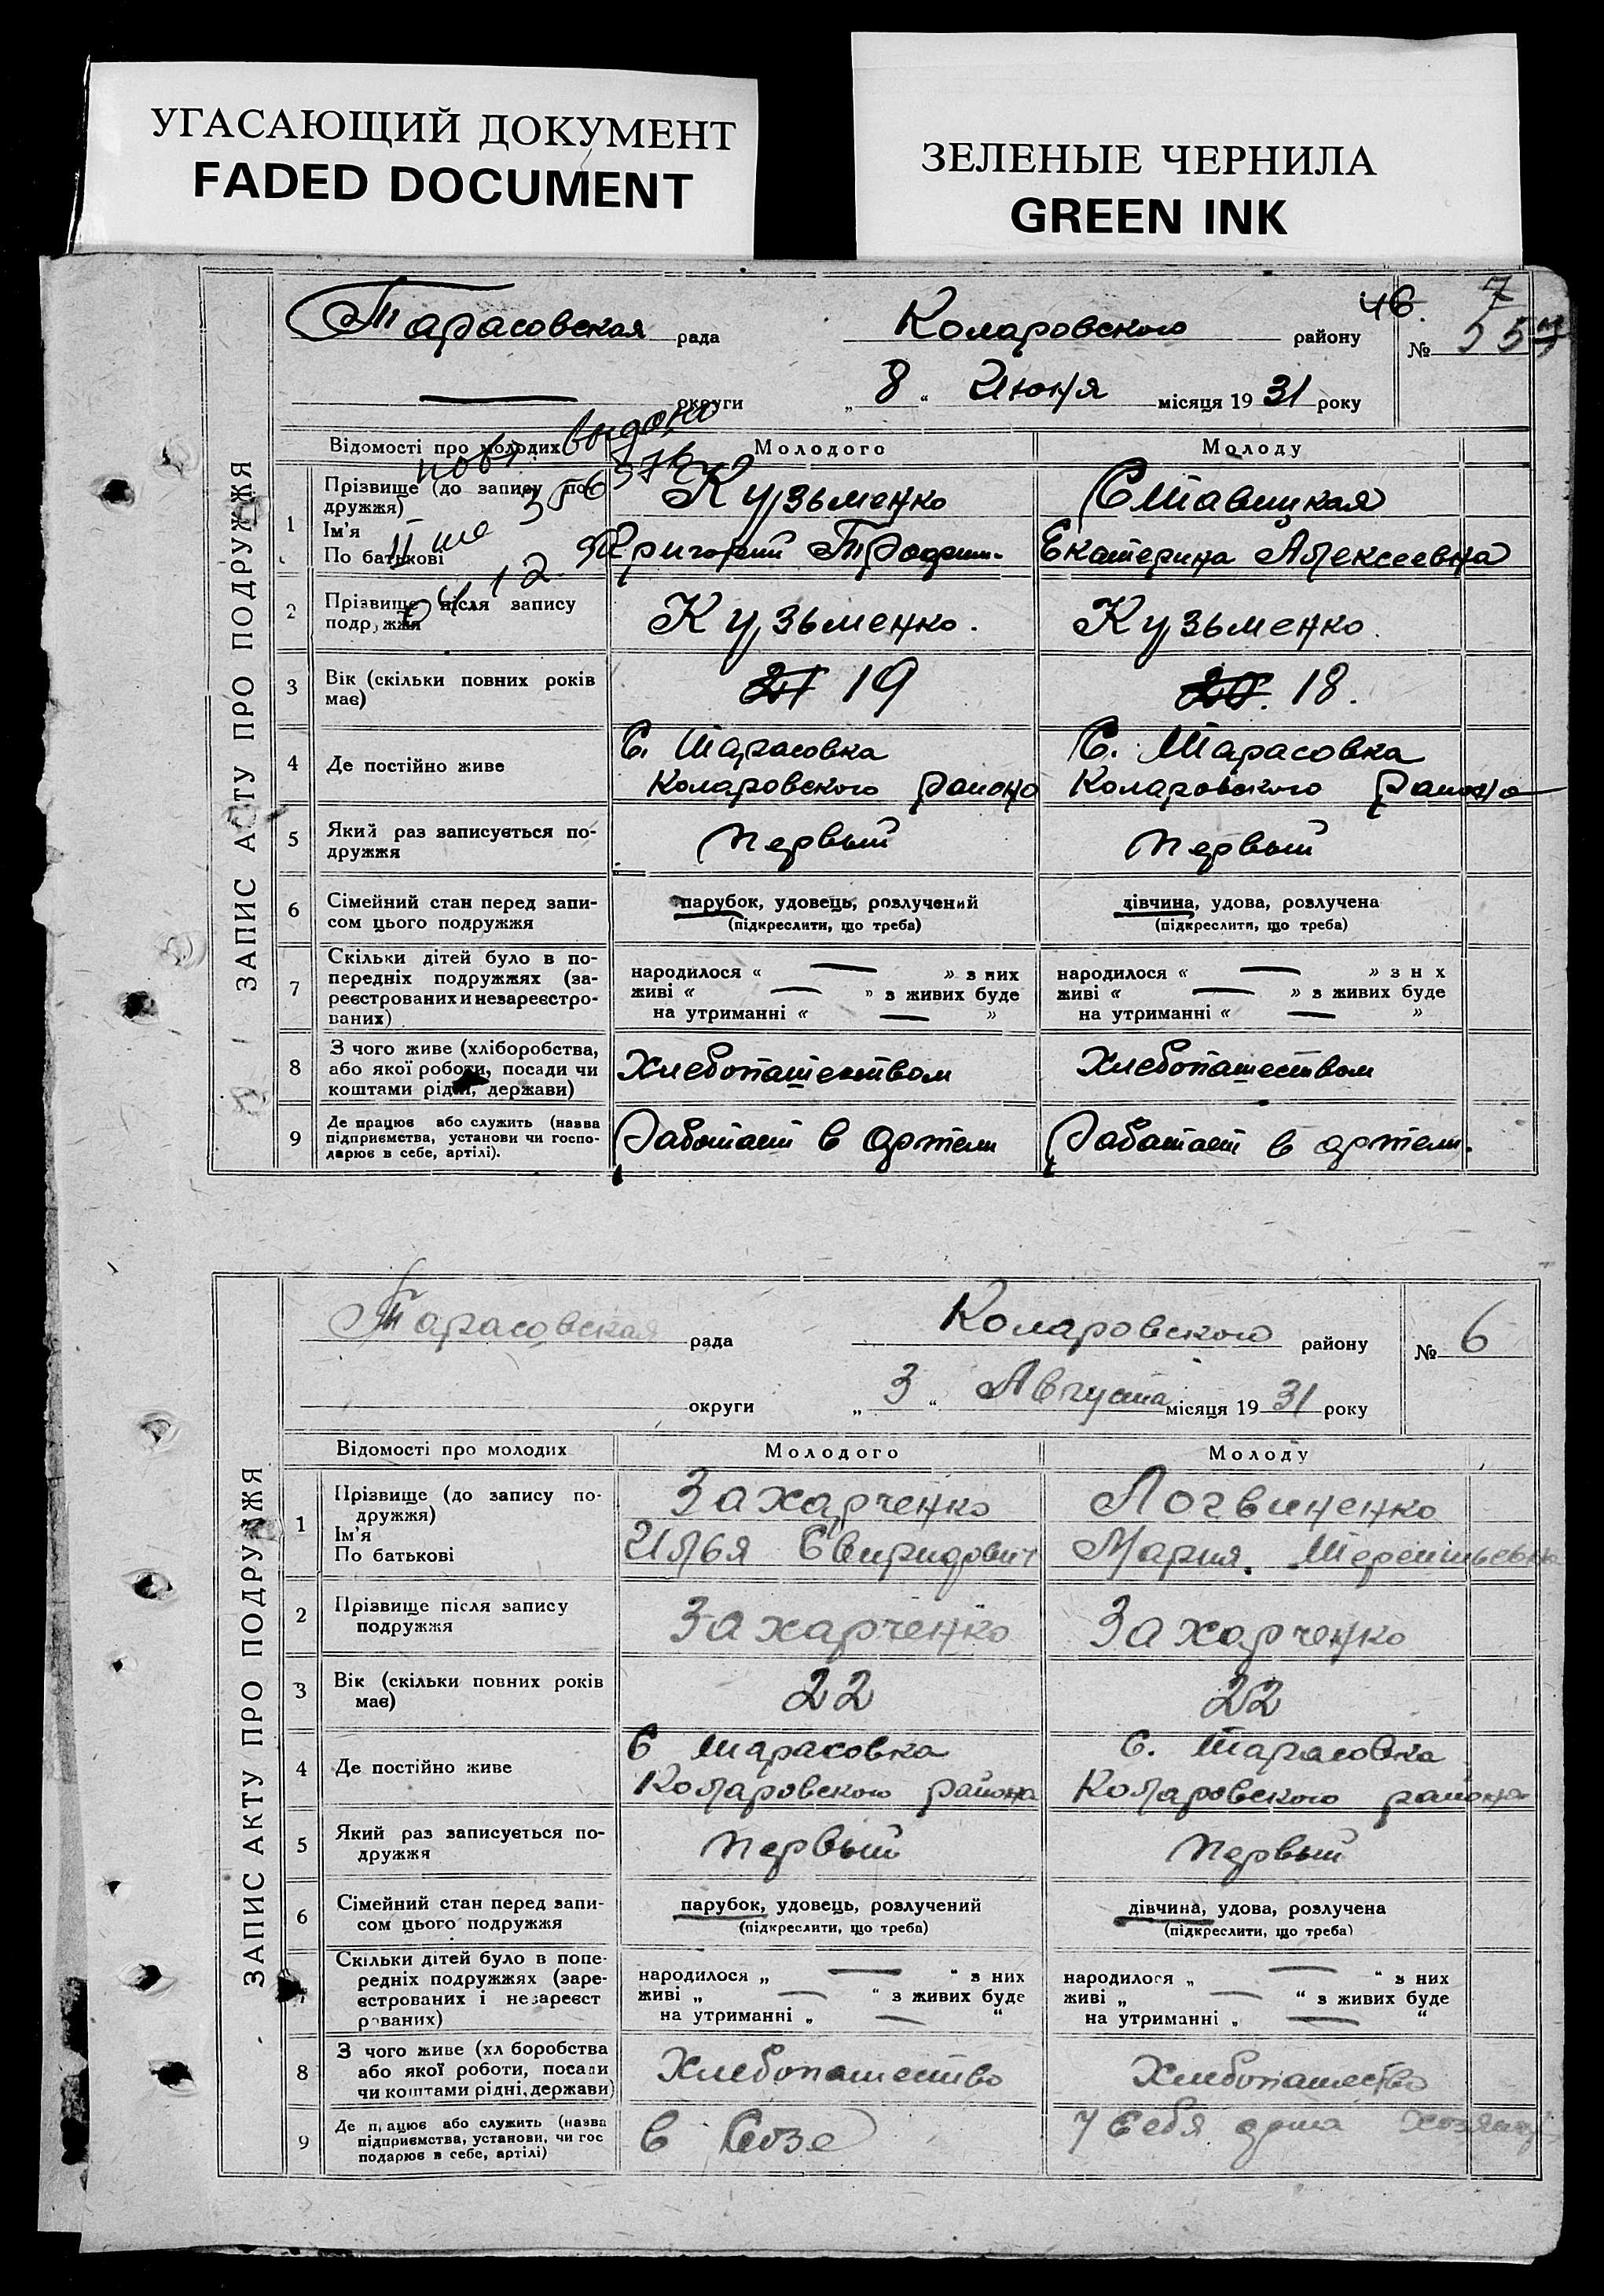 УГАСАЮЩИЙ ДОКУМЕНТ
FADED DOCUMENT
ЗЕЛЕНЫЕ ЧЕРНИЛА
GREEN INK
ЗАПИС АКТУ ПРО ПОДРУЖЖЯ
Тарасовская рада Коларовского району 46. 7
№ 5
округи „ 8 “ Июня місяця 1931 року
Відомості про молодих Молодого Молоду
выдано
1 Прізвище (до запису по-
дружжя) Кузьменко Ставицкая
Ім'я
По батькові Григорий Трофим. Екатерина Алексеевна
2 Прізвище після запису
подружжя Кузьменко. Кузьменко.
3 Вік (скільки повних років
має) 21 19 20. 18.
4 Де постійно живе С. Тарасовка С. Тарасовка
Коларовского района Коларовского района
5 Який раз записується по-
дружжя первый первый
6 Сімейний стан перед запи-
сом цього подружжя
парубок, удовець, розлучений дівчина, удова, розлучена
(підкреслити, що треба) (підкреслити, що треба)
7 Скільки дітей було в по-
передніх подружжях (за-
реєстрованих и незареєстро-
ваних)
народилося « — » з них народилося « — » з н х
живі « — » з живих буде живі « — » з живих буде
на утриманні « — » на утриманні « — »
8 З чого живе (хліборобства,
або якої роботи, посади чи
коштами рідні, держави) Хлебопашеством Хлебопашеством
9 Де працює або служить (назва
підприємства, установи чи госпо-
дарює в себе, артілі). Работает в артели Работает в артели.
ЗАПИС АКТУ ПРО ПОДРУЖЖЯ
Тарасовская рада Коларовского району № 6
округи „ 3 “ Августа місяця 1931 року
Відомості про молодих Молодого Молоду
1 Прізвище (до запису по-
дружжя) Захарченко Логвиненко
Ім'я
По батькові Илья Свиридович Мария Терентьевна
2 Прізвище після запису
подружжя Захарченко Захарченко
3 Вік (скільки повних років
має) 22 22
4 Де постійно живе С Тарасовка С. Тарасовка
Коларовского района Коларовского района
5 Який раз записується по-
дружжя первый первый
6 Сімейний стан перед запи-
сом цього подружжя
парубок, удовець, розлучений дівчина, удова, розлучена
(підкреслити, що треба) (підкреслити, що треба)
7 Скільки дітей було в попе-
редніх подружжях (заре-
єстрованих і незареєст
рованих)
народилося „ — “ з них народилося „ — “ з них
живі „ — “ з живих буде живі „ — “ з живих буде
на утриманні „ — “ на утриманні „ — “
8 З чого живе (хл боробства
або якої роботи, посади
чи коштами рідні, держави) Хлебопашество Хлебопашество
9 Де працює або служить (назва
підприємства, установи, чи гос
подарює в себе, артілі) в Созе у себя дома